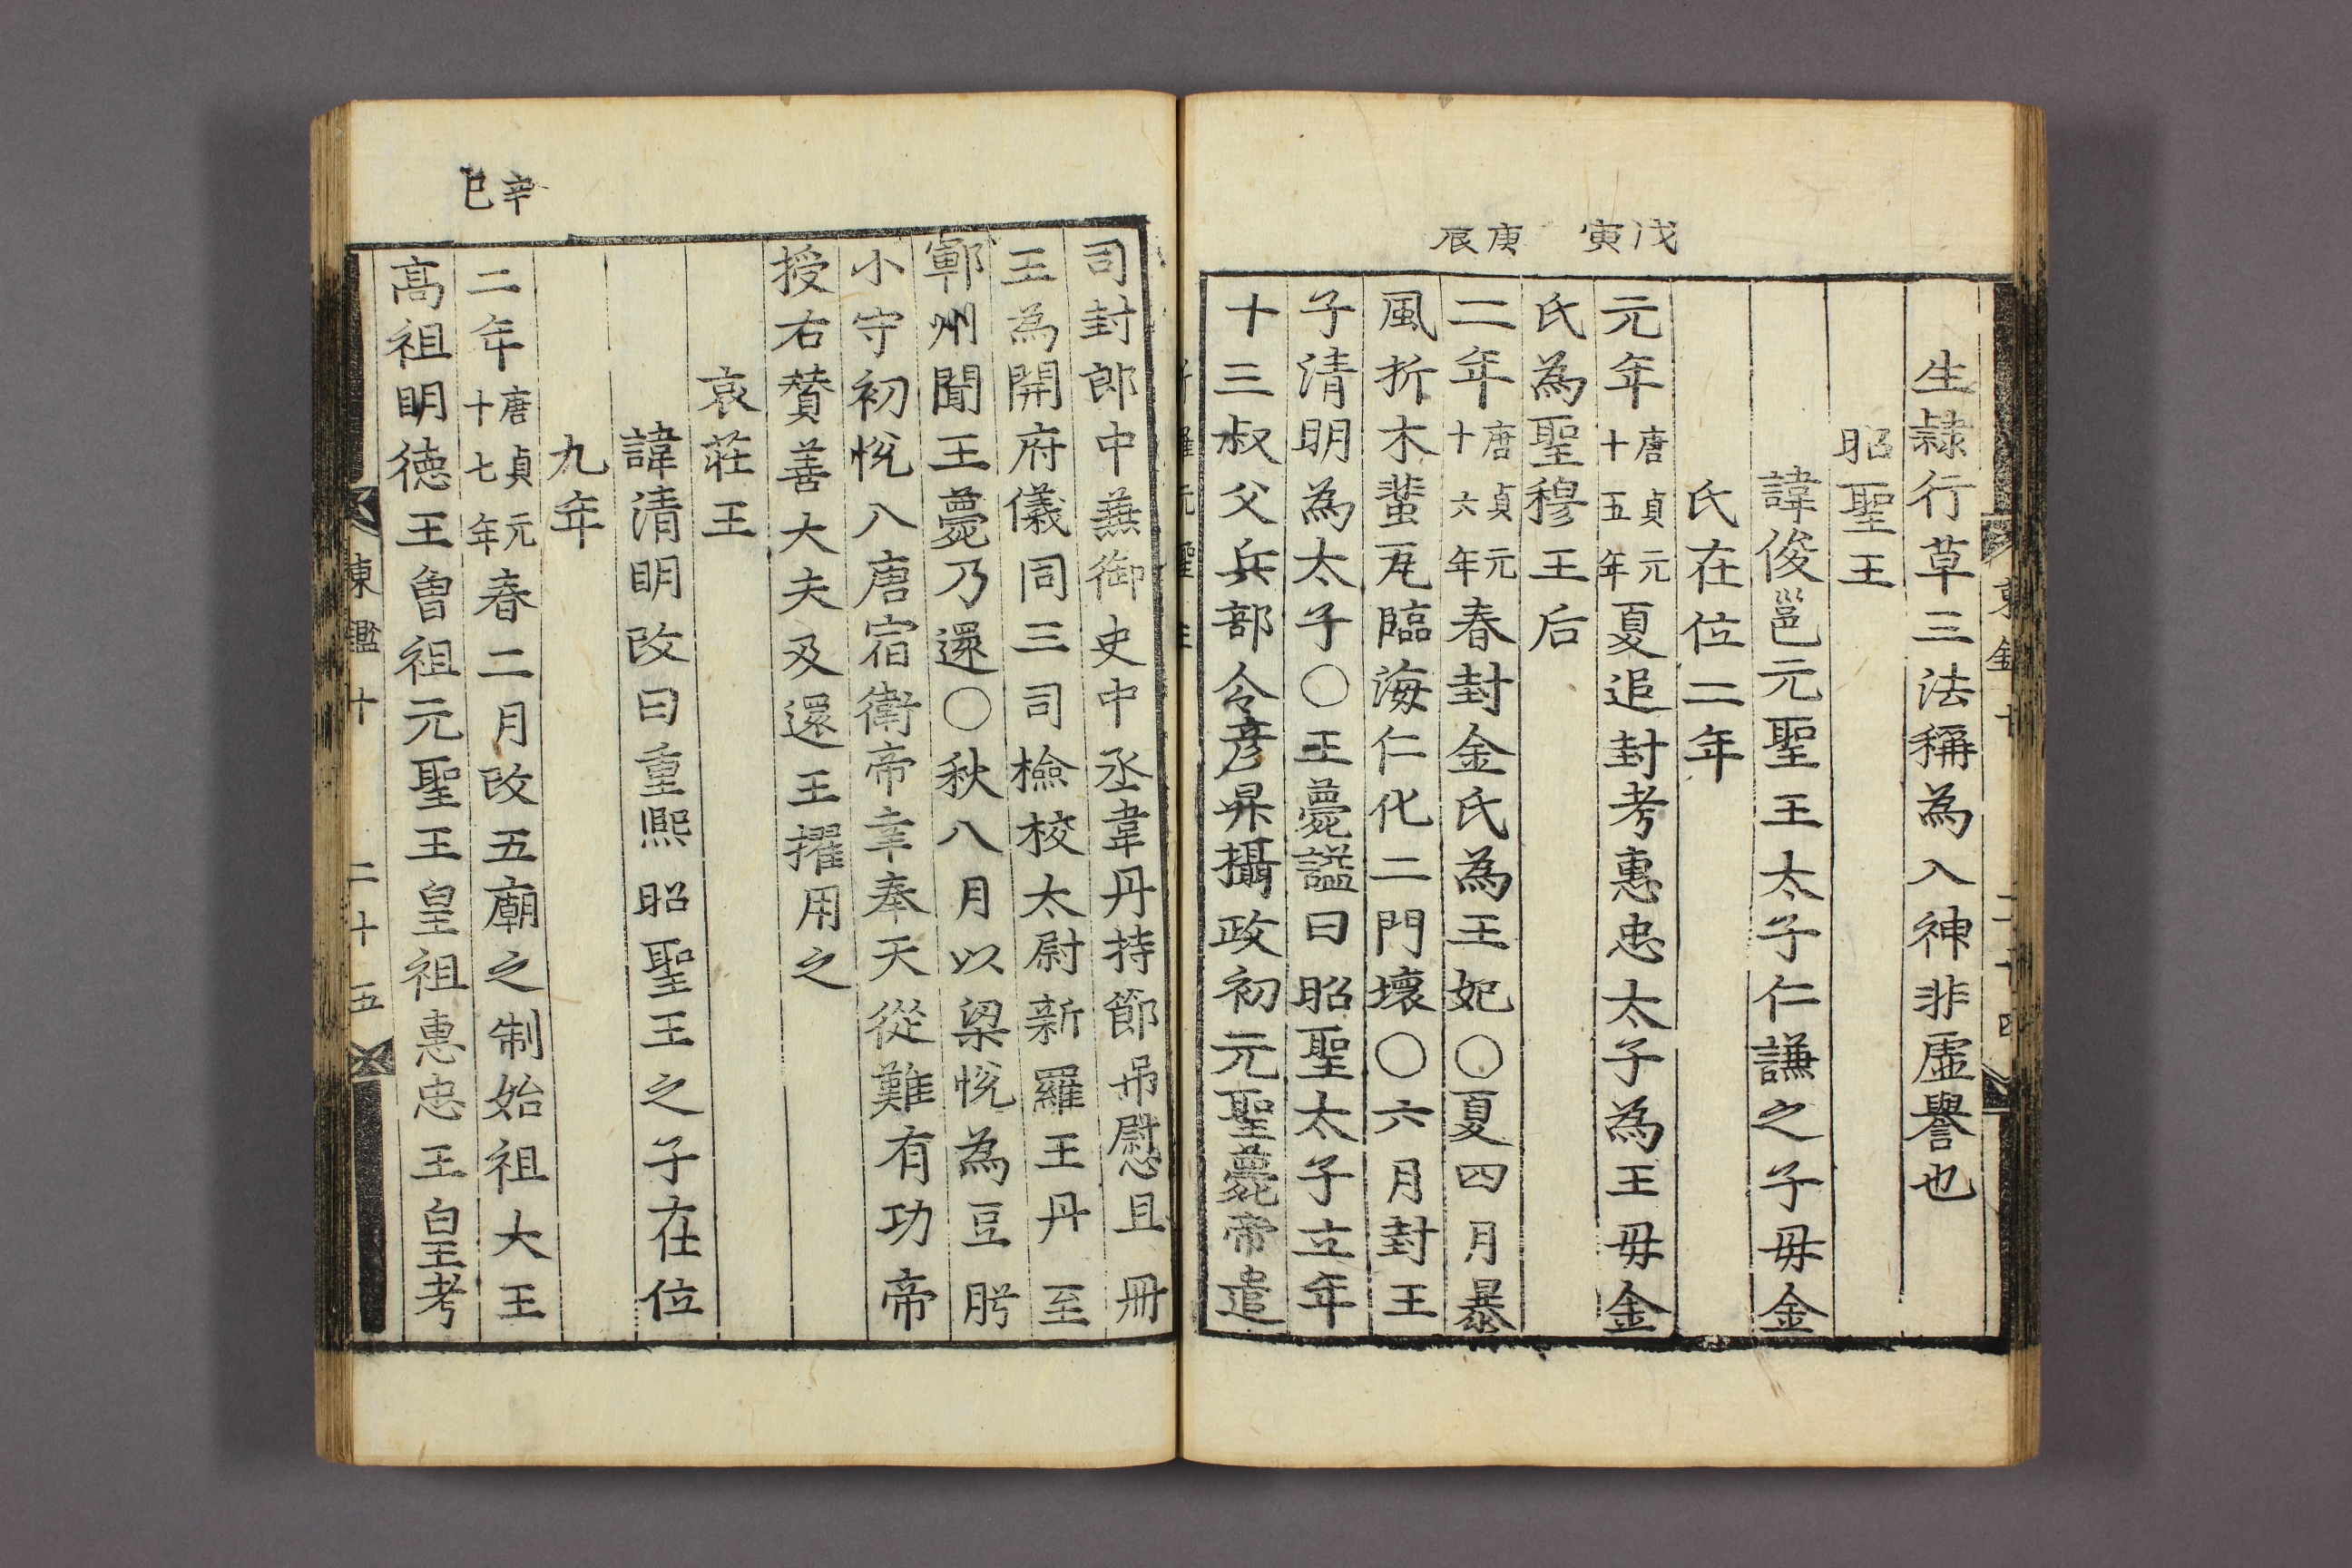 戊寅
庚辰
生隷行草三法稱為入神非虛譽也
昭聖王
諱俊邕元聖王太子仁謙之子毋金
氏在位二年
元年唐貞元十五年夏追封考惠忠太子為王毋金
氏為聖穆王后
二年唐貞元十六年春封金氏為王妃○夏四月暴
風折木蜚瓦臨海仁化二門壞○六月封王
子清明為太子○王薨謚曰昭聖太子立年
十三叔父兵部令彦昇攝政初元聖薨帝遣
辛巳
司封郎中兼御史中丞韋丹持節吊慰且冊
王為開府儀同三司檢校太尉新羅王丹至
鄆州聞王薨乃還○秋八月以梁悅為豆肹
小守初悅入唐宿衛帝幸奉天從難有功帝
授右贊善大夫及還王擢用之
哀莊王
諱清明改曰重熙昭聖王之子在位
九年
二年唐貞元十七年春二月改五廟之制始祖大王
高祖明德王曾祖元聖王皇祖惠忠王皇考
東鑑十 二十五